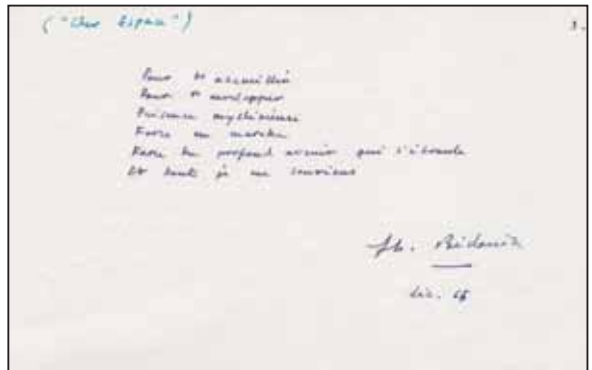 ("Cher Espace")
Pour t' accueillir
Pour t' envelopper
Présence mystérieuse
Force en marche
Force du profond avenir qui s'ébranle
Et dont je me souviens
déc.